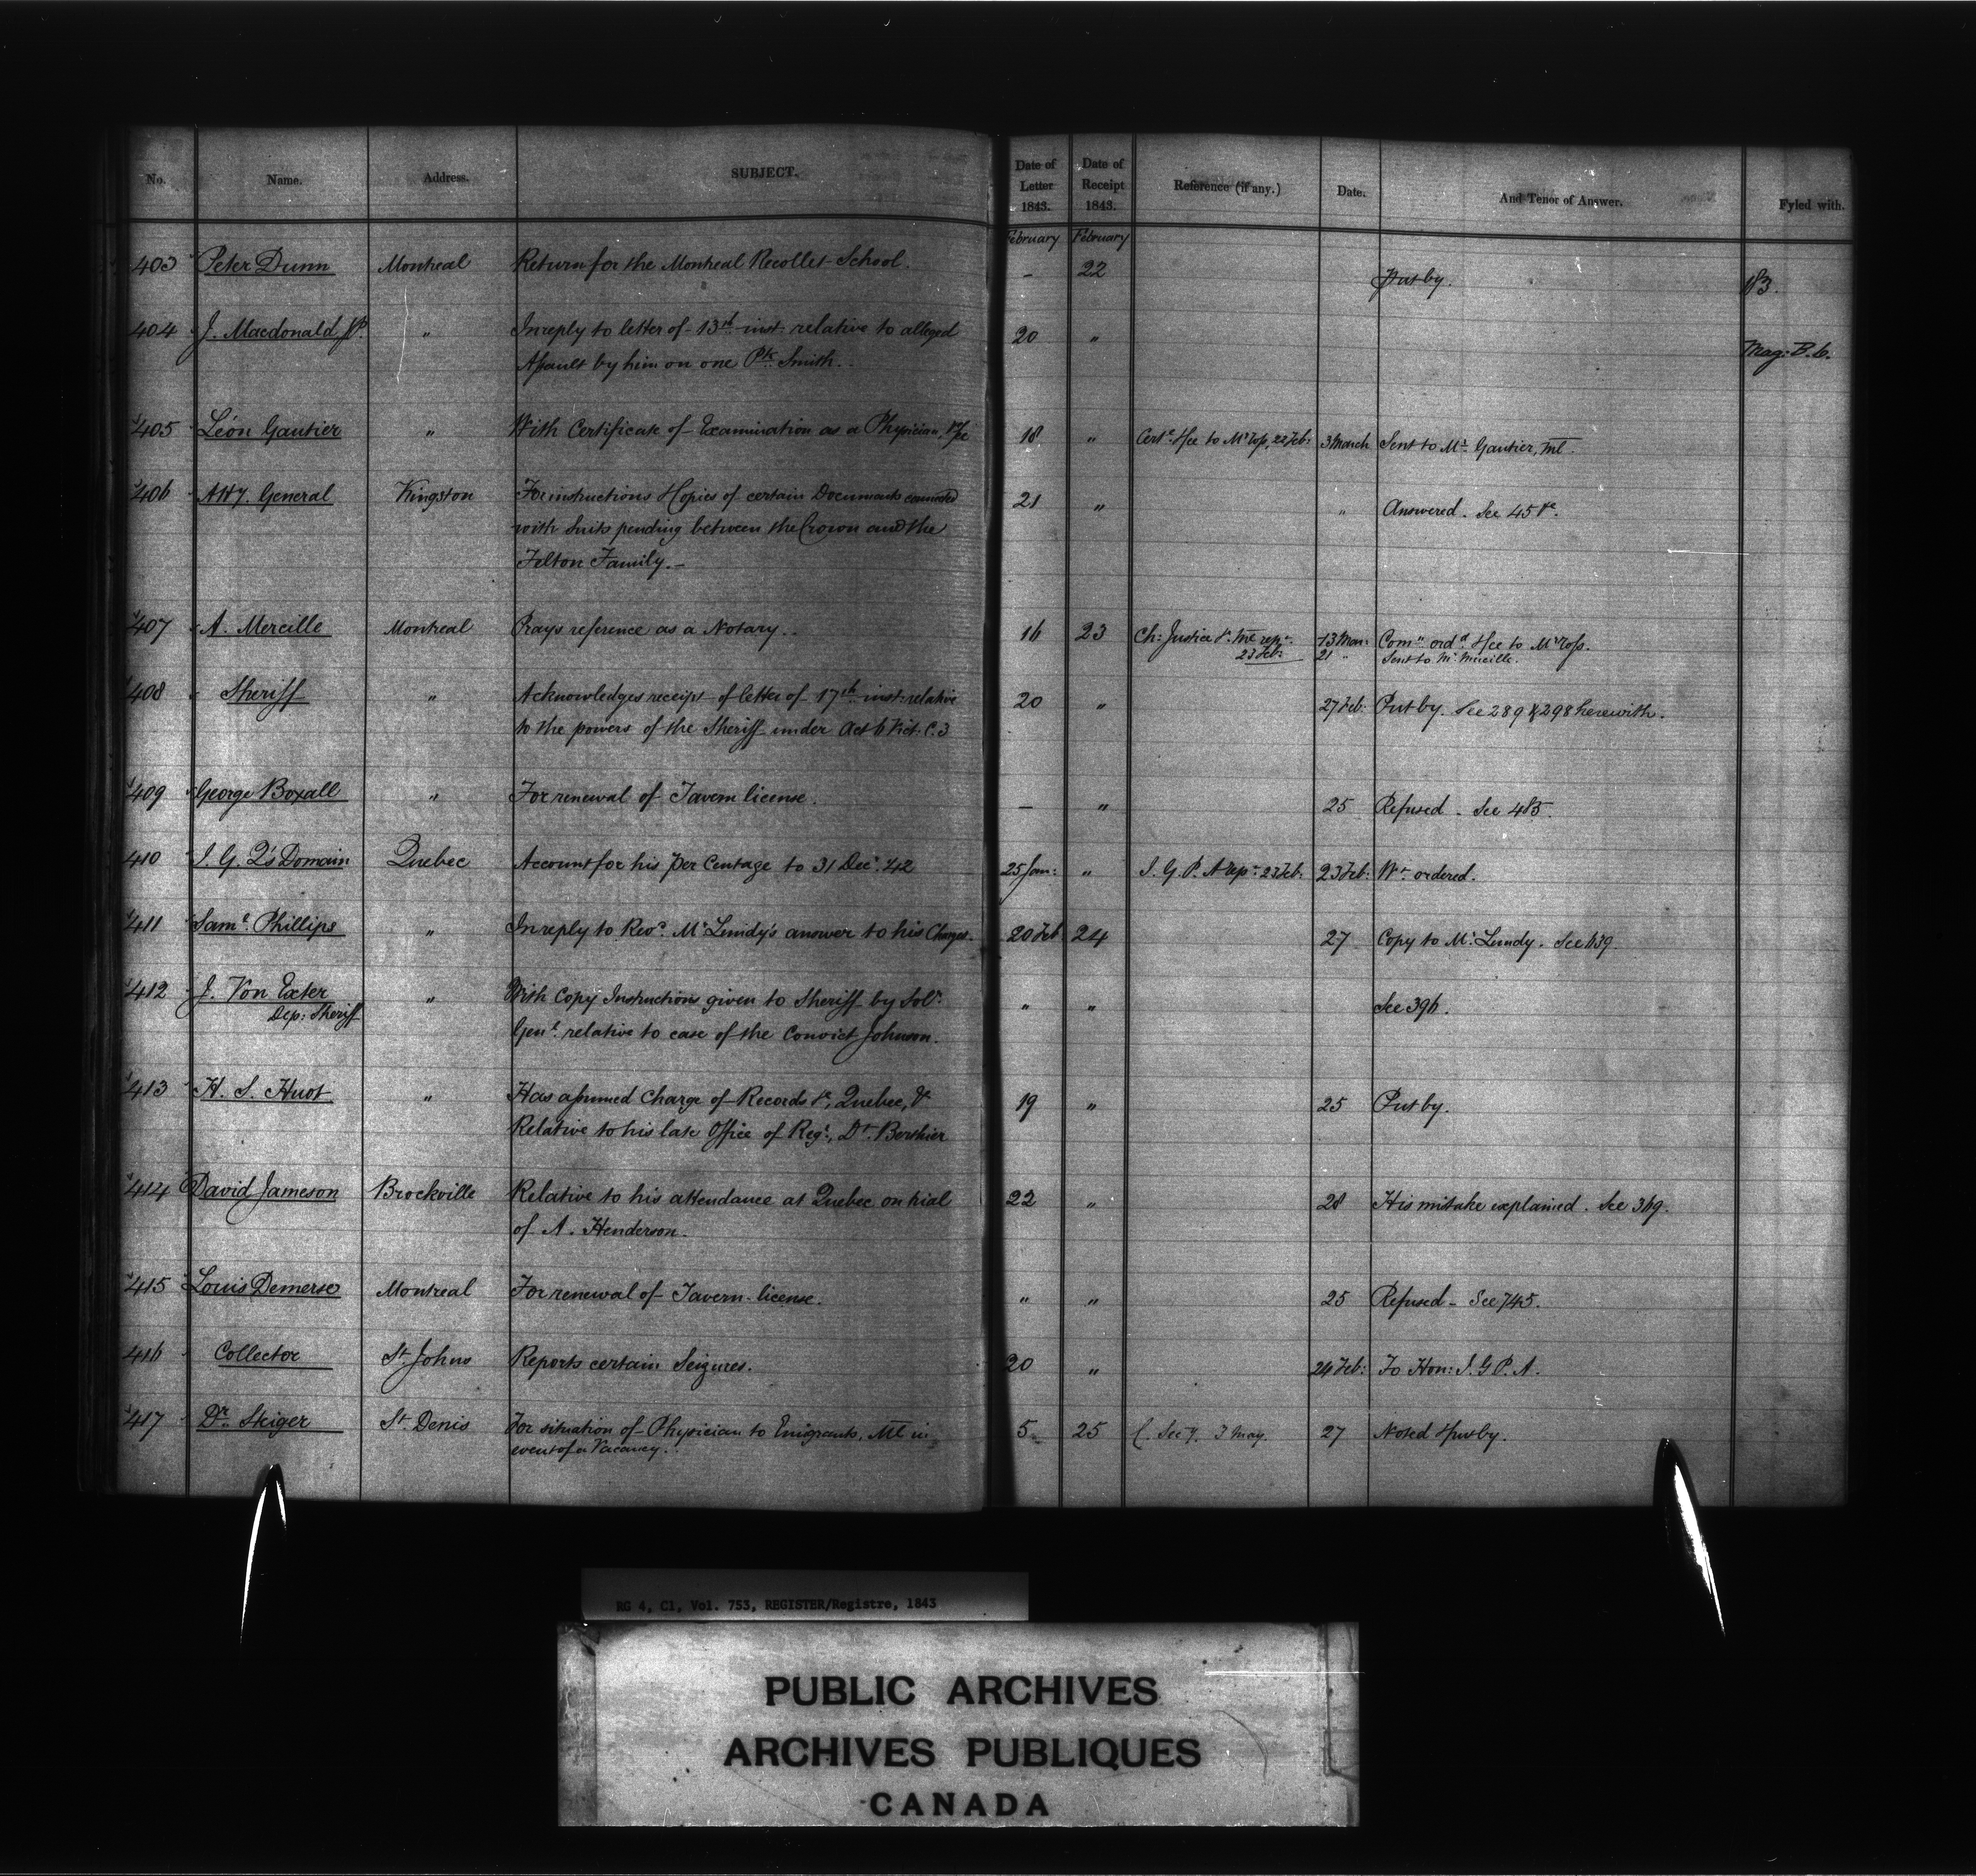 No. Name. Address. SUBJECT. Date of Letter 1843. Date of Receipt 1843. Reference (if any.) Date. And Tenor of Answer. Fyled with.
February February
403 Peter Dunn Montreal Return for the Montreal Recollet School. - 22 Put by. 183.
404 J. Macdonald Jr. " In reply to letter of 13th inst. relative to alleged 20 "
Assault by him on one Pk. Smith. Mag: B. C.
405 Léon Gautier " With Certificate of Examination as a Physician, &c 18 " Cert. &fee to Mr Ross, 22 Feb: 3 March Sent to Mr. Gautier, Ml.
406 Atty. General Kingston For instructions & Copies of certain Documents connected 21 " " Answered. See 45 &c.
with Suits pending between the Crown and the
Felton Family.-
407 A. Mercille Montreal Prays reference as a Notary. 16 23 Ch: Justice &c. Ml rep. 13 Mar: Comn ordd. &fee to Mr Ross.
23 Feb: 21 " Sent to Mr Mercille.
408 Sheriff " Acknowledges receipt of letter of 17th inst. relative 20 " 27 Feb: Put by. See 289 & 298 herewith.
to the powers of the Sheriff under Act 6 Vict. C. 3
409 George Boxall " For renewal of Tavern license. - " 25 Refused - See 485.
410 I. G. Q's Domain Quebec Account for his per Centage to 31 Dec. '42 25 Jan: " I. G. P. A rep. 23 Feb: 23 Feb: Wt. ordered.
411 Saml. Phillips " In reply to Revd. Mr Lundy's answer to his Charges. 20 Feb 24 27 Copy to Mr. Lundy. See 639
412 J. Von Exter " With Copy Instructions given to Sheriff by Solr. " " See 396.
Dep: Sheriff
Genl. relative to case of the Convict Johnson.
413 H. S. Huot " Has assumed Charge of Records &c, Quebec, & 19 " 25 Put by.
Relative to his late Office of Regr., Dt. Berthier
414 David Jameson Brockville Relative to his attendance at Quebec on trial 22 " 28 His mistake explained. See 369.
of A. Henderson.
415 Louis Demerse Montreal For renewal of Tavern license. " " 25 Refused - See 745.
416 Collector St. Johns Reports certain Seizures. 20 " 24 Feb: To Hon: I. G P. A.
417 Dr. Skiger St. Denis For situation of Physician to Emigrants, Ml in 5 25 See 3 May. 27 Noted & put by.
event of a Vacancy.
RG 4, C1, Vol. 753, REGISTER/Registre, 1843
PUBLIC ARCHIVES
ARCHIVES PUBLIQUES
CANADA